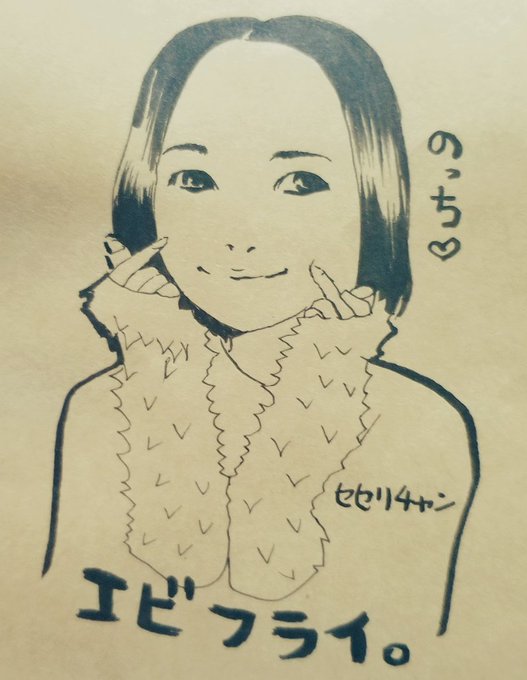 のっち♡
セセリチャン
エビフライ。